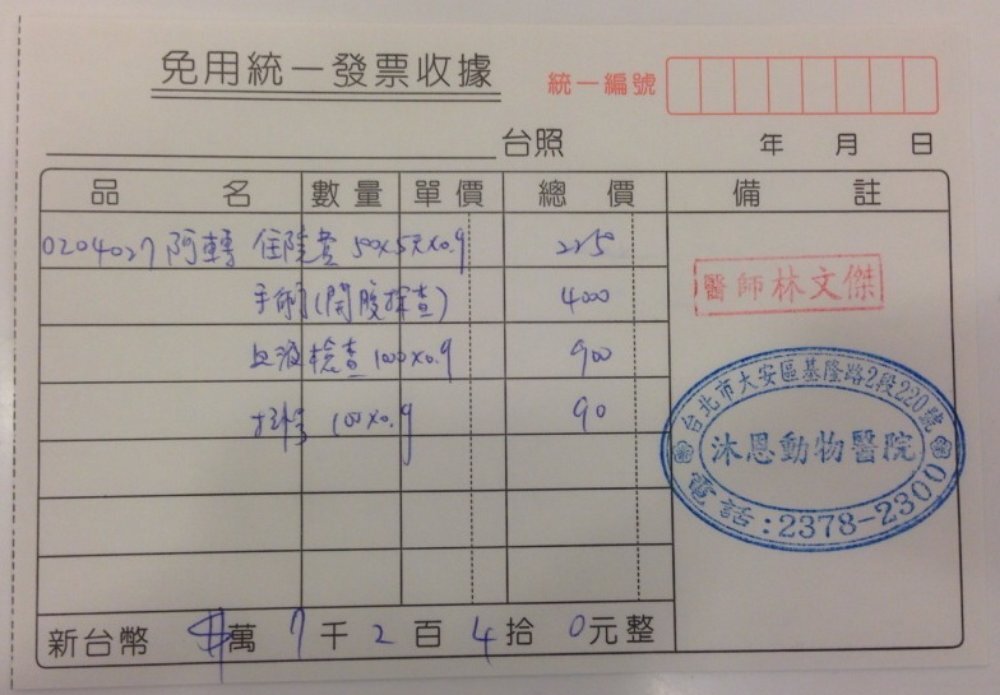 免用統一發票收據
統一編號
台照 年 月 日
品名 數量 單價 總價 備註
0204027 阿轉 住院費 50x5天x0.9 225
手術(開腹探查) 4000
血液檢查 1000x0.9 900
100x0.9 90
醫師林文傑
台北市大安區基隆路2段220號
沐恩動物醫院
電話:2378-2300
新台幣 萬 7千2百4拾0元整